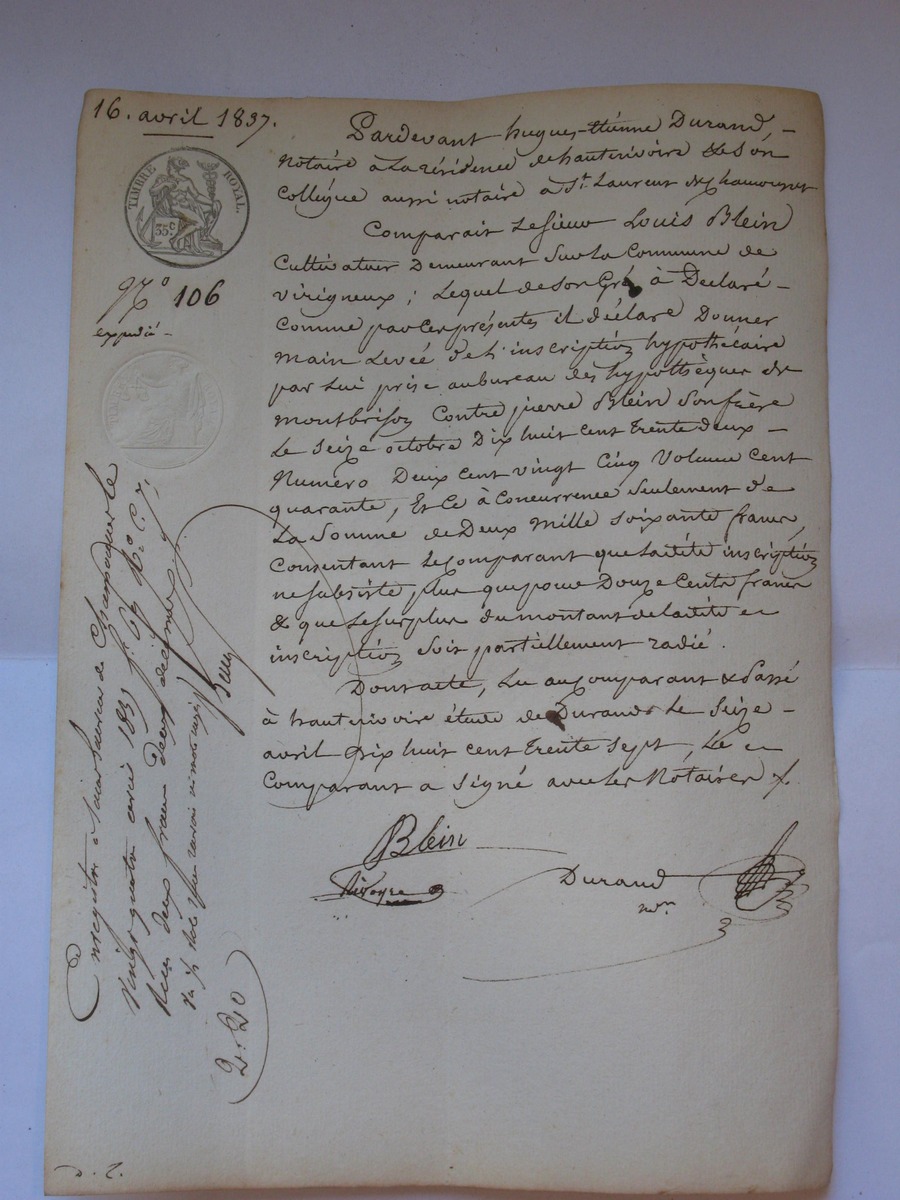 16. avril 1837.
TIMBRE ROYAL.
35c.
N.o 106
expedié -
Pardevant hugues-étienne Durand, -
Notaire à La résidence de hauterivoire & Son
Collégue aussi notaire à St. Laurent de Chamousset
Comparait Le Sieur Louis Blein
Cultivateur Demeurant Sur La Commune de
Virigneux ; Lequel de son Gré à Déclaré -
Comme par Ces présentes il déclare Donner
main Levée de L'inscription hypothécaire
par Lui prise au bureau des hypothèques de
montbrison Contre pierre Blein Son frère
Le Seize octobre Dix huit cent trente deux -
Numero Deux cent vingt Cinq Volume Cent
quarante, Et Ce à Concurrence Seulement de
La Somme de Deux Mille soixante francs,
Consentant Le Comparant que Ladite inscription
ne Subsiste, plus que pour Douze Cents francs
& que Le Surplus du montant de Ladite
inscription Soit partiellement radié.
Dont acte, Lu au Comparant & Passé
à hauterivoire étude de Durand Le Seize -
avril Dix huit cent trente Sept, Le
Comparant a Signé avec Les Notaires
Blein
Durand
nre
Enregistré à Saint Laurent de Chamousset le
Vingt quatre avril 1837 f.o 67 R.o C. 7,
Reçu deux francs deux décimes
2. 20